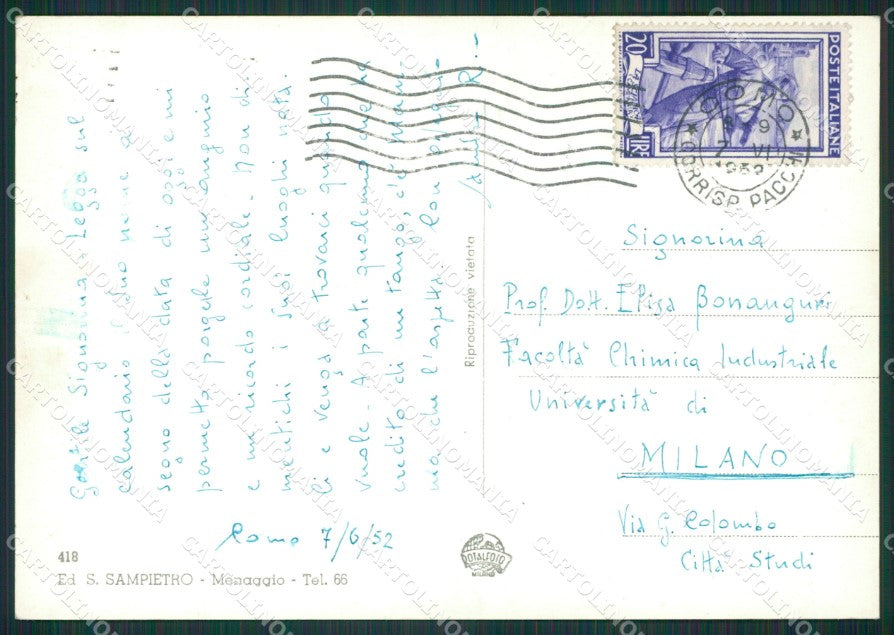 Gentile Signorina Leggo sul
calendario il suo nome a
segno della data di oggi e mi
permetta porgerle un augurio
e un ricordo cordiale. Non di
mentichi i suoi luoghi nata
li e venga a trovarci quando
vuole. A parte qualcuno che ha
credito di un tango, c'è
ma che l'aspetta con
Como 7/6/52
418
Ed. S. SAMPIETRO - Menaggio - Tel. 66
Riproduzione vietata
FOTALFOTO
MILANO
20
LIRE
POSTE ITALIANE
COMO
8 9
7 VI
1952
CORRISP. PACCHI
Signorina
Prof. Dott. Elisa Bonanguri
Facoltà Chimica Industriale
Università di
MILANO
Via G. Colombo
Città Studi
CARTOLINOMANIA